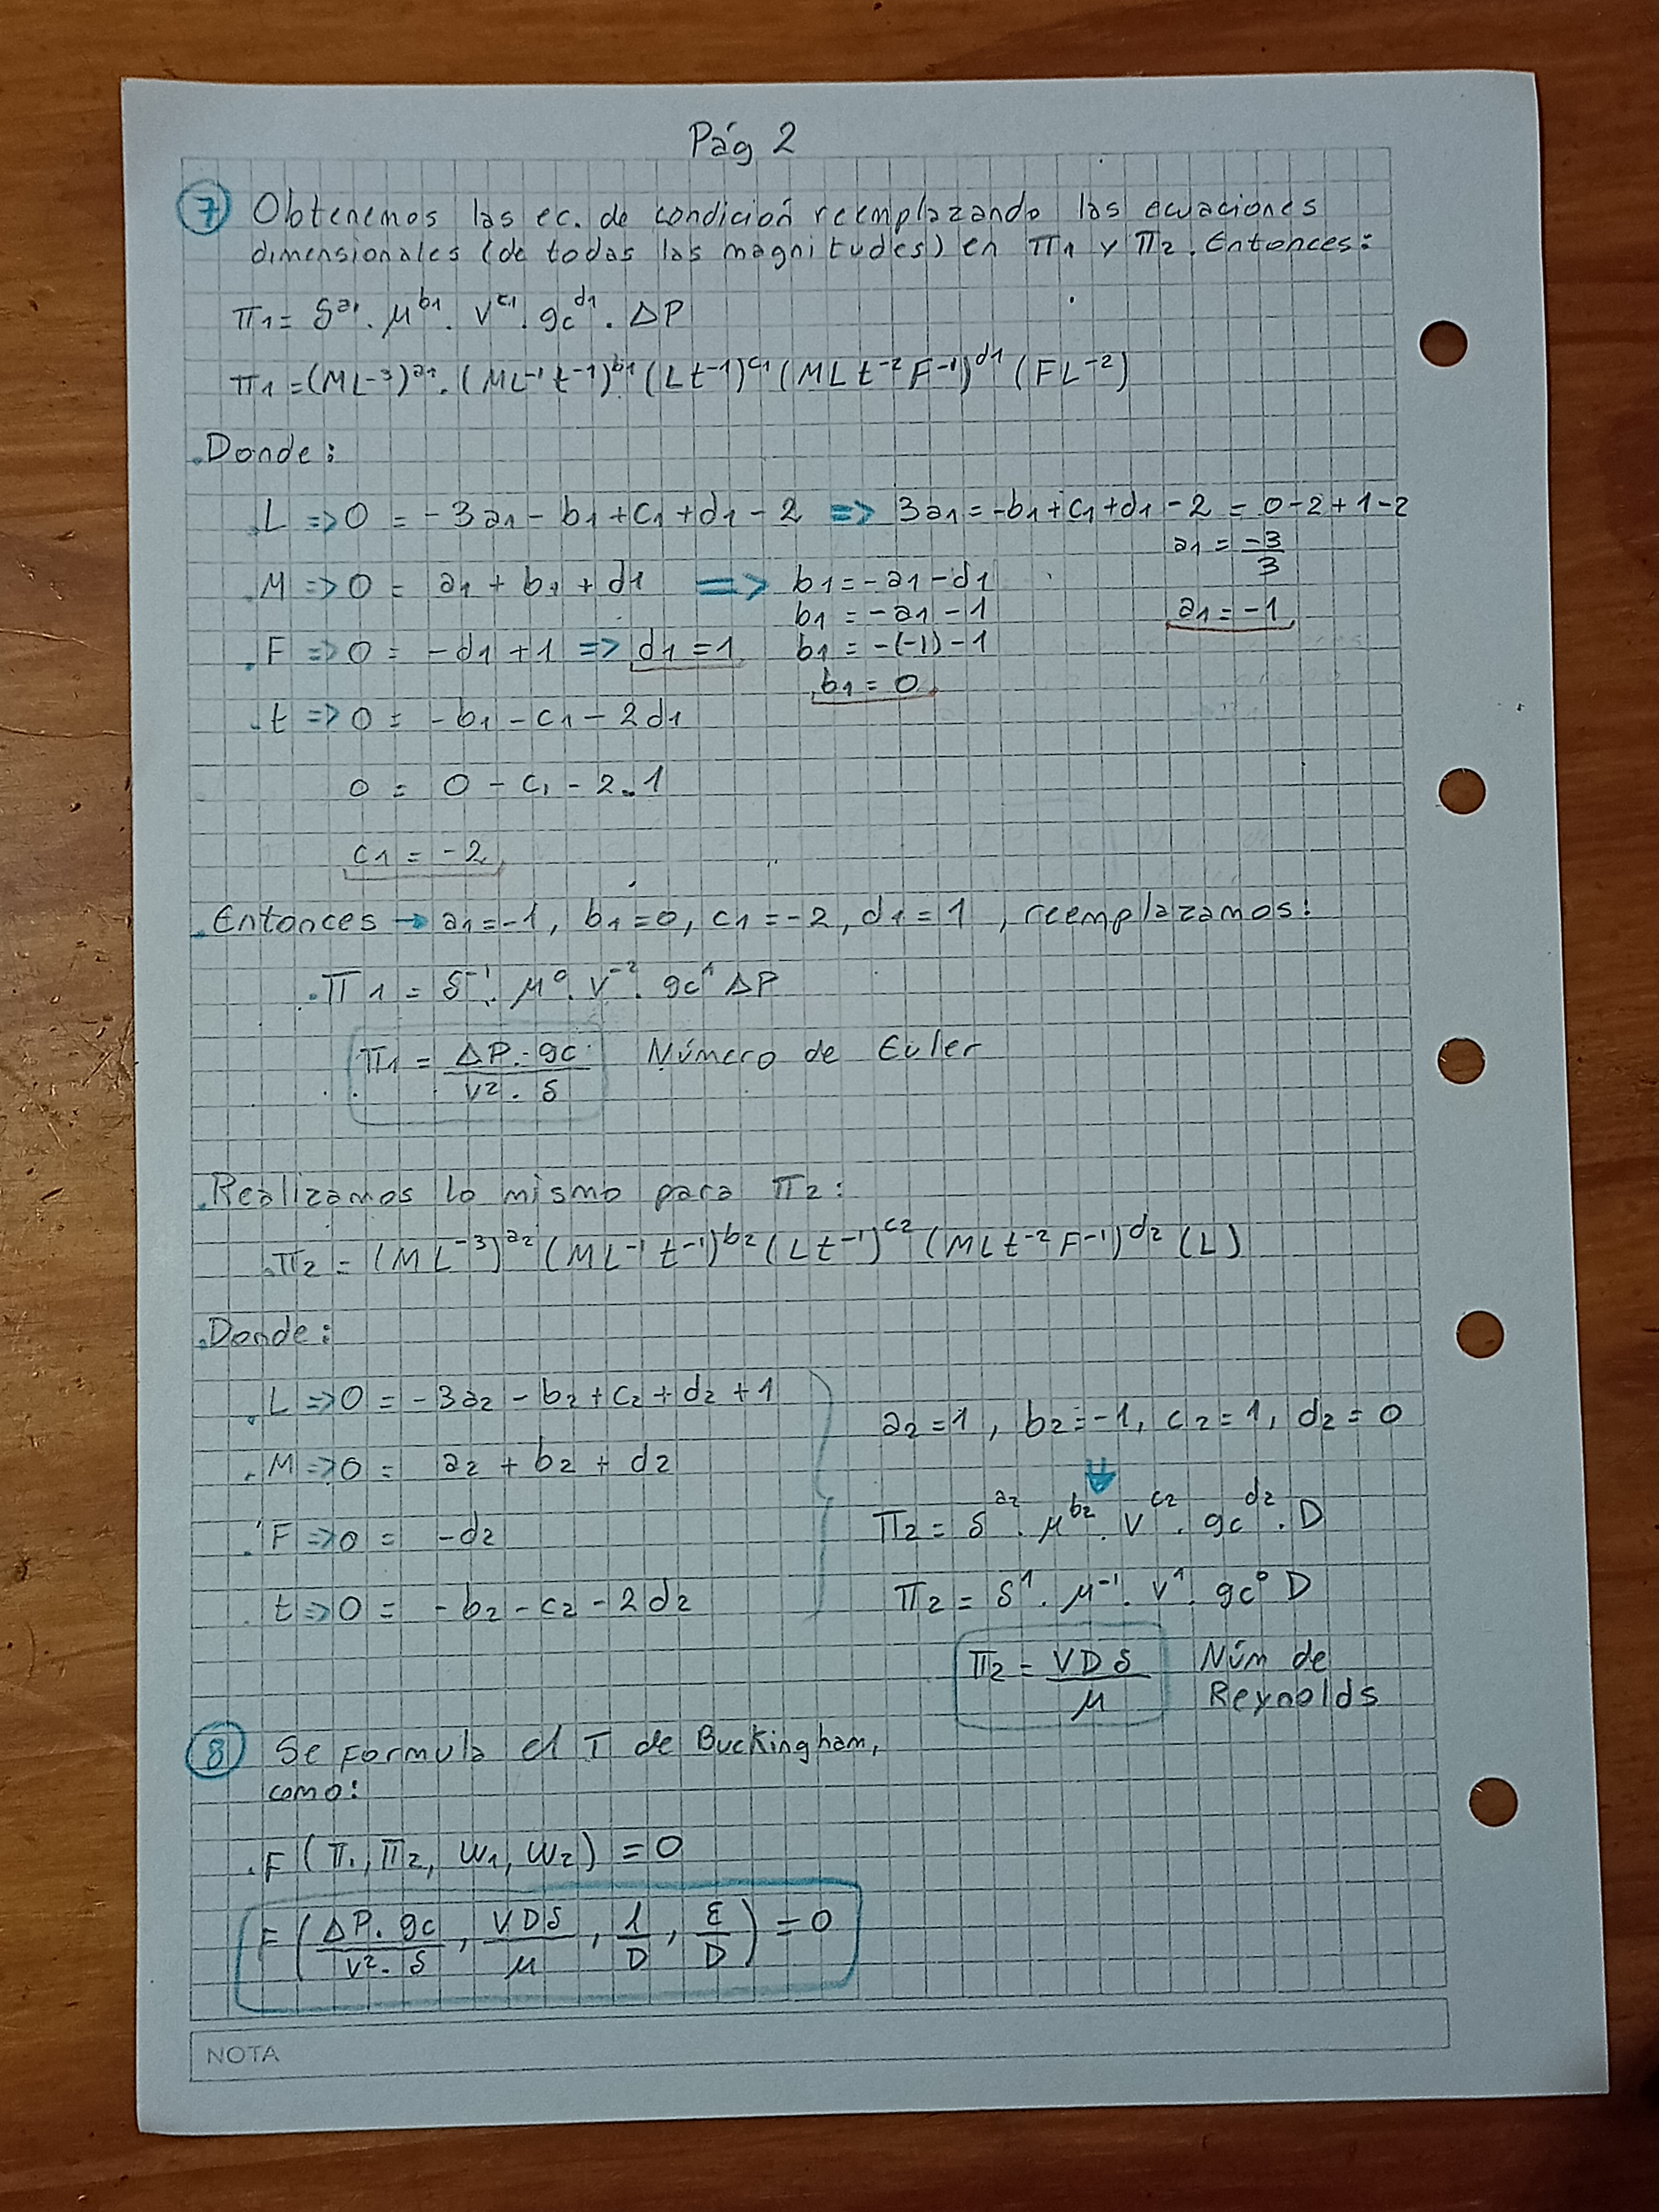 Pág 2
7 Obtenemos las ec. de condición reemplazando las ecuaciones
dimensionales (de todas las magnitudes) en π1 y π2. Entonces:
π1 = δ^a1 . μ^b1 . v^c1 . gc^d1 . ΔP
π1 = (ML^-3)^a1 . (ML^-1 t^-1)^b1 (Lt^-1)^c1 (MLt^-2 F^-1)^d1 (FL^-2)
. Donde:
. L => 0 = -3a1 - b1 + c1 + d1 - 2 => 3a1 = -b1 + c1 + d1 - 2 = 0-2+1-2
a1 = -3/3
a1 = -1
. M => 0 = a1 + b1 + d1 => b1 = -a1 - d1
b1 = -a1 - 1
. F => 0 = -d1 + 1 => d1 = 1 b1 = -(-1) - 1
b1 = 0
. t => 0 = -b1 - c1 - 2d1
0 = 0 - c1 - 2.1
c1 = -2
. Entonces → a1 = -1, b1 = 0, c1 = -2, d1 = 1, reemplazamos:
. π1 = δ^-1 . μ^0 . v^-2 . gc^1 ΔP
π1 = ΔP . gc / v² . δ Número de Euler
. Realizamos lo mismo para π2:
. π2 = (ML^-3)^a2 (ML^-1 t^-1)^b2 (Lt^-1)^c2 (MLt^-2 F^-1)^d2 (L)
. Donde:
. L => 0 = -3a2 - b2 + c2 + d2 + 1
. M => 0 = a2 + b2 + d2
. F => 0 = -d2
. t => 0 = -b2 - c2 - 2d2
a2 = 1, b2 = -1, c2 = 1, d2 = 0
⇓
π2 = δ^a2 . μ^b2 . v^c2 . gc^d2 . D
π2 = δ^1 . μ^-1 . v^1 . gc^0 D
π2 = VDδ / μ Núm de
Reynolds
8 Se formula el T de Buckingham,
como:
. F (π1, π2, w1, w2) = 0
F (ΔP . gc / v² . δ, VDδ / μ, l / D, ε / D) = 0
NOTA